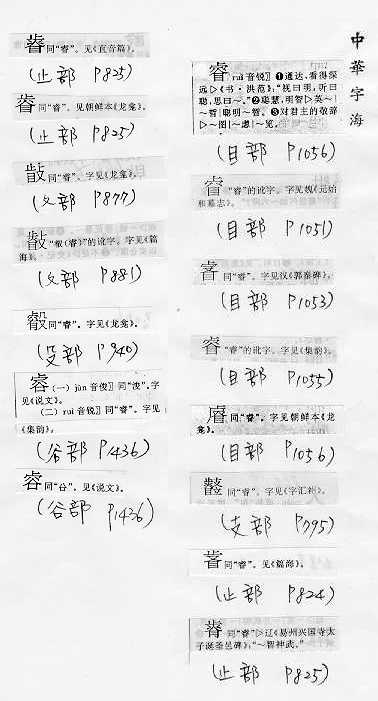 中華字海
睿 ruì 音锐〗❶通达,看得深
远▷《书·洪范》:“视曰明,听曰
聪,思曰~。”❷聪慧,明智▷英~|
~哲|聪明~智。❸对君主的敬辞
▷~图|~虑|~览。
(目部 P1056)
“睿”的讹字。字见魏《元始
和墓志》。
(目部 P1051)
同“睿”。字见汉《郭泰碑》。
(目部 P1053)
“睿”的讹字。字见《集韵》。
(目部 P1055)
同“睿”。字见朝鲜本《龙
龛》。
(目部 P1056)
同“睿”。字见《字汇补》。
(支部 P795)
同“睿”。见《篇海》。
(止部 P824)
同“睿”▷辽《易州兴国寺太
子诞圣邑碑》:“~智神武。”
(止部 P825)
同“睿”。见《直音篇》。
(止部 P825)
同“睿”。见朝鲜本《龙龛》。
(止部 P825)
同“睿”。字见《龙龛》。
(攵部 P877)
“叡(睿)”的讹字。字见《篇
海》。
(攵部 P881)
同“睿”。字见《龙龛》。
(殳部 P940)
睿 (一) jùn 音俊〗同“浚”。字
见《说文》。
(二) ruì 音锐〗同“睿”。字见
《集韵》。
(谷部 P1436)
同“谷”。见《说文》。
(谷部 P1436)